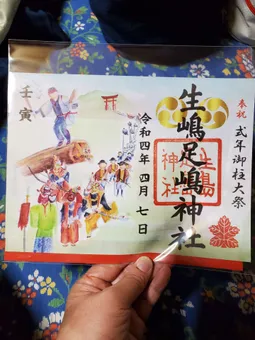 奉祝 式年御柱大祭
生嶋足嶋神社
令和四年四月七日
壬寅